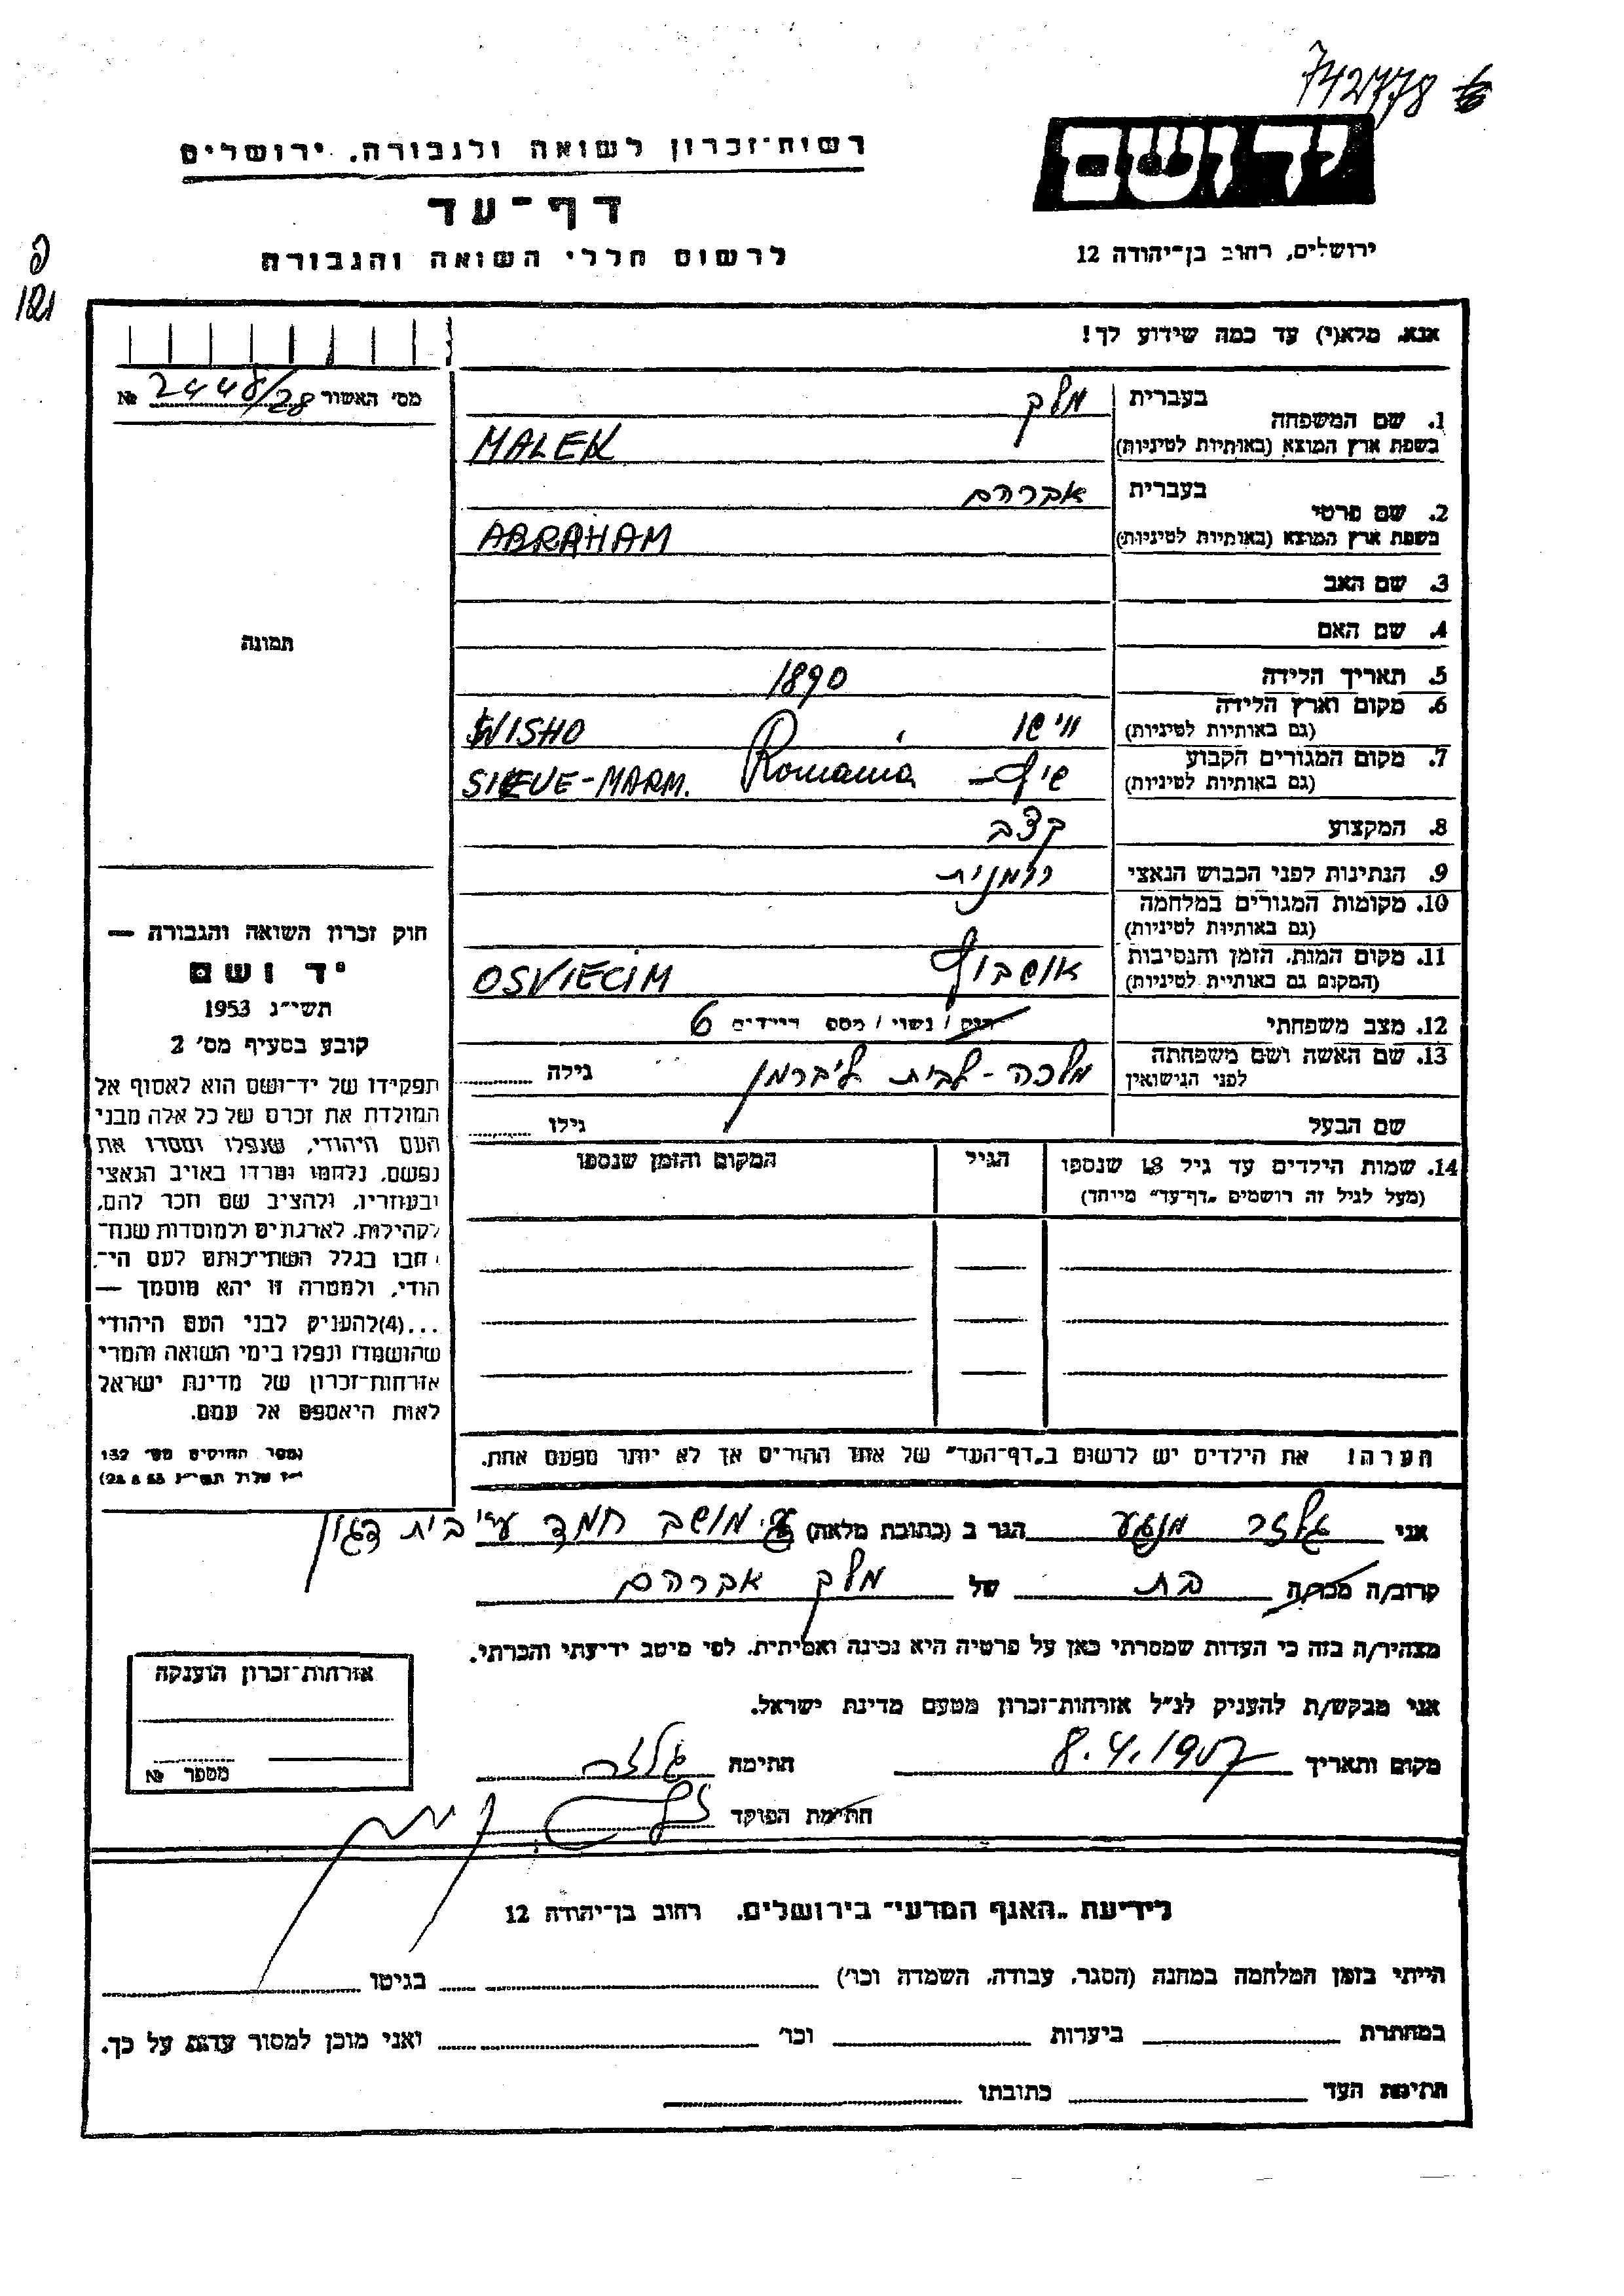 742778
רשות־זכרון לשואה ולגבורה, ירושלים
יד ושם
דף־עד
לרשום חללי השואה והגבורה
ירושלים, רחוב בן־יהודה 12
181
אנא, מלא(י) עד כמה שידוע לך!
מס׳ האשור № 2448/28
בעברית מלק
1. שם המשפחה
בשפת ארץ המוצא (באותיות לטיניות) MALEK
בעברית אברהם
2. שם פרטי
בשפת ארץ המוצא (באותיות לטיניות) ABRAHAM
3. שם האב
4. שם האם
תמונה
5. תאריך הלידה 1890
6. מקום וארץ הלידה
(גם באותיות לטיניות) ווישו WISHO
7. מקום המגורים הקבוע
(גם באותיות לטיניות) Romania SIEUE-MARM.
8. המקצוע קצב
9. הנתינות לפני הכבוש הנאצי רומנית
10. מקומות המגורים במלחמה
(גם באותיות לטיניות)
11. מקום המות, הזמן והנסיבות
(המקום גם באותיות לטיניות) אושבוץ OSVIECIM
12. מצב משפחתי רווק / נשוי / מספר הילדים 6
13. שם האשה ושם משפחתה
לפני הנישואין מלכה - לבית ליברמן גילה
שם הבעל גילו
14. שמות הילדים עד גיל 18 שנספו הגיל המקום והזמן שנספו
(מעל לגיל זה רושמים „דף־עד״ מיוחד)
חוק זכרון השואה והגבורה —
יד ושם
תשי״ג 1953
קובע בסעיף מס׳ 2
תפקידו של יד־ושם הוא לאסוף אל
המולדת את זכרם של כל אלה מבני
העם היהודי, שנפלו ומסרו את
נפשם, נלחמו ומרדו באויב הנאצי
ובעוזריו, ולהציב שם וזכר להם,
לקהילות, לארגונים ולמוסדות שנח־
רבו בגלל השתייכותם לעם הי־
הודי, ולמטרה זו יהא מוסמך —
...(4)להעניק לבני העם היהודי
שהושמדו ונפלו בימי השואה והמרי
אזרחות־זכרון של מדינת ישראל
לאות היאספם אל עמם.
(ספר החוקים מס׳ 132
י״ז אלול תשי״ג 28.8.53)
הערה! את הילדים יש לרשום ב„דף־העד״ של אחד ההורים אך לא יותר מפעם אחת.
אני הגר ב (כתובת מלאה) מושב חמד ע״י בית דגון
קרוב/ה מכר/ה בת של מלק אברהם
מצהיר/ה בזה כי העדות שמסרתי כאן על פרטיה היא נכונה ואמיתית, לפי מיטב ידיעתי והכרתי.
אני מבקש/ת להעניק לנ״ל אזרחות־זכרון מטעם מדינת ישראל.
מקום ותאריך 8.4.1957 חתימה
חתימת הפוקד
אזרחות־זכרון הוענקה
מספר №
לידיעת „האגף המדעי״ בירושלים, רחוב בן־יהודה 12
הייתי בזמן המלחמה במחנה (הסגר, עבודה, השמדה וכו׳) בגיטו
במחתרת ביערות וכו׳ ואני מוכן למסור עדות על כך.
חתימת העד כתובתו